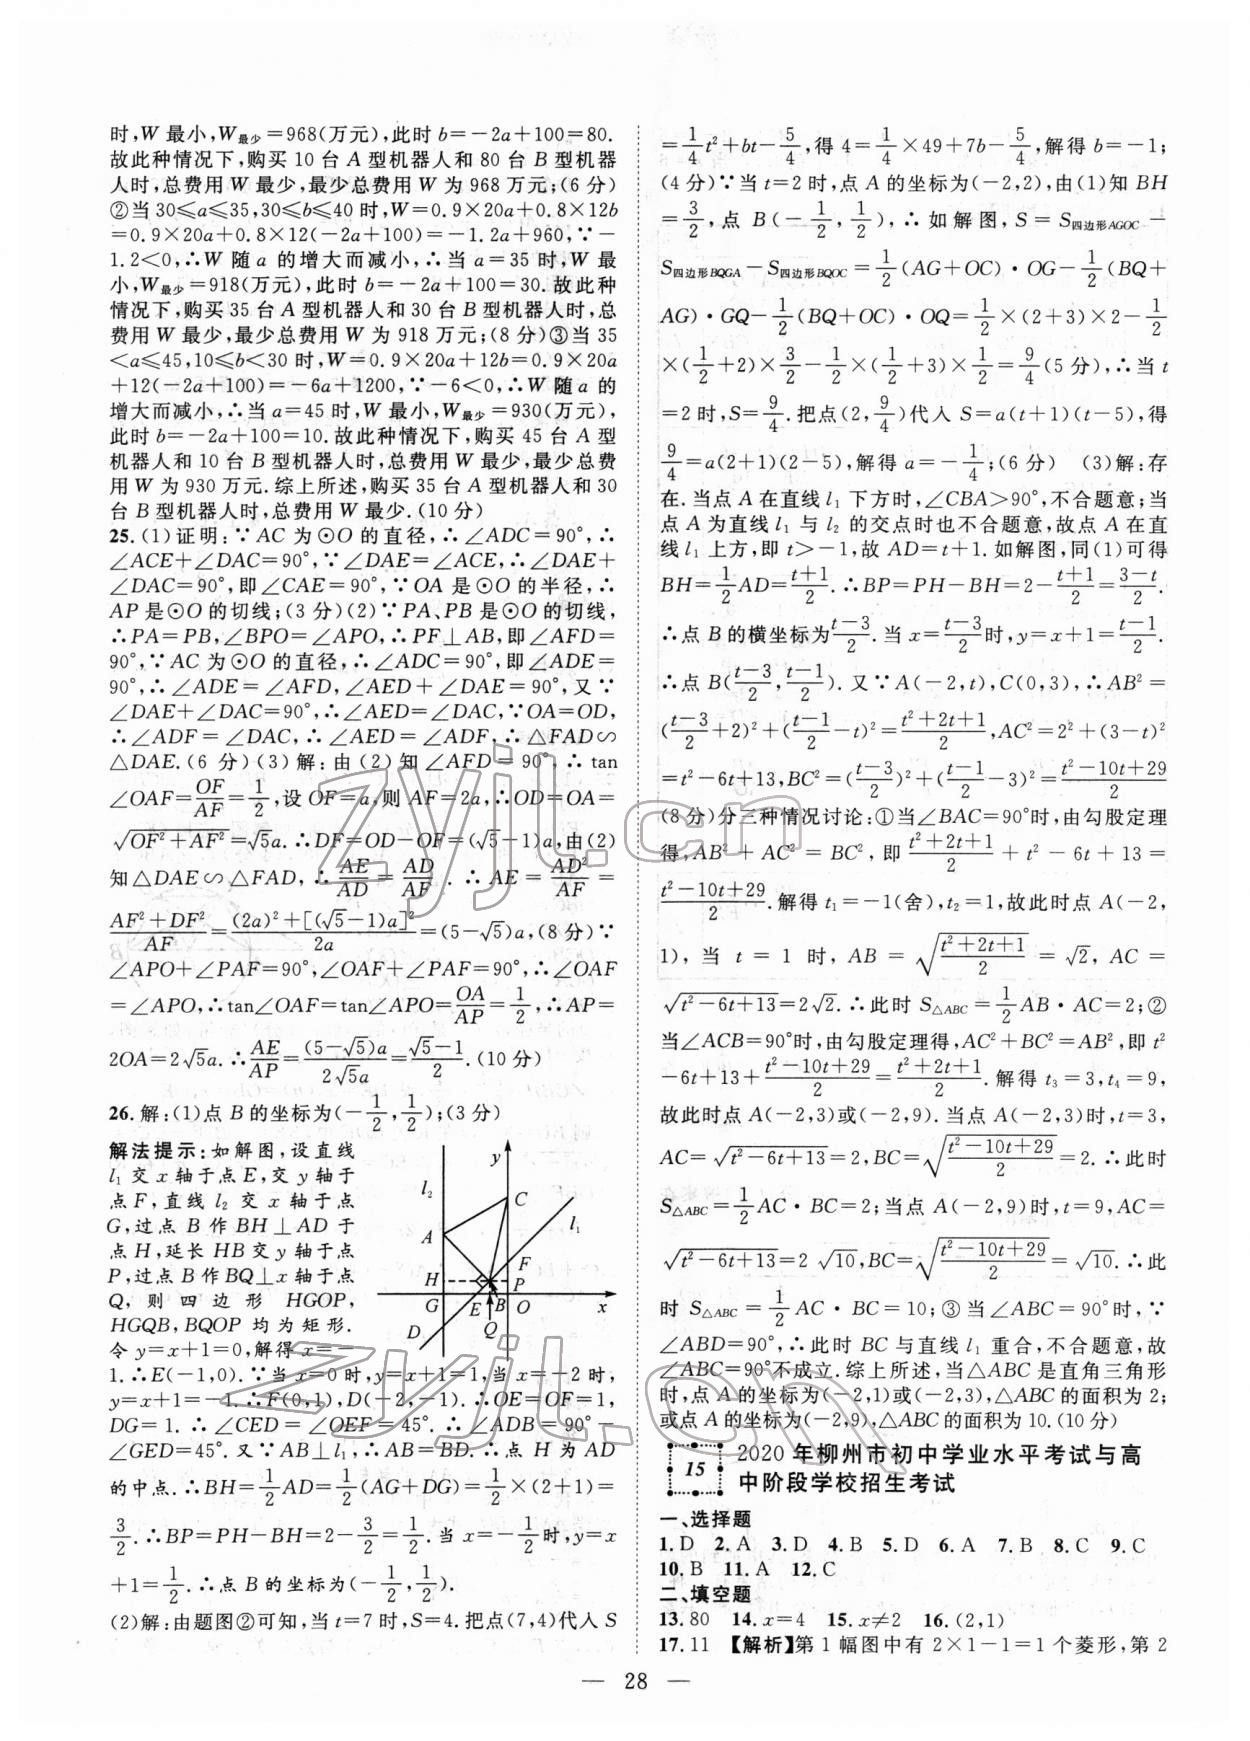 时,W 最小,W最少=968(万元),此时 b=-2a+100=80.
故此种情况下,购买 10 台 A 型机器人和 80 台 B 型机器
人时,总费用 W 最少,最少总费用 W 为 968 万元;(6 分)
②当 30≤a≤35,30≤b≤40 时,W=0.9×20a+0.8×12b
=0.9×20a+0.8×12(-2a+100)=-1.2a+960,∵-
1.2<0,∴W 随 a 的增大而减小,∴当 a=35 时,W 最
小,W最少=918(万元),此时 b=-2a+100=30.故此种
情况下,购买 35 台 A 型机器人和 30 台 B 型机器人时,总
费用 W 最少,最少总费用 W 为 918 万元;(8 分)③当 35
<a≤45,10≤b<30 时,W=0.9×20a+12b=0.9×20a
+12(-2a+100)=-6a+1200,∵-6<0,∴W 随 a 的
增大而减小,∴当 a=45 时,W 最小,W最少=930(万元),
此时 b=-2a+100=10.故此种情况下,购买 45 台 A 型
机器人和 10 台 B 型机器人时,总费用 W 最少,最少总费
用 W 为 930 万元.综上所述,购买 35 台 A 型机器人和 30
台 B 型机器人时,总费用 W 最少.(10 分)
25.(1)证明:∵AC 为⊙O 的直径,∴∠ADC=90°,∴
∠ACE+∠DAC=90°,∵∠DAE=∠ACE,∴∠DAE+
∠DAC=90°,即∠CAE=90°,∵OA 是⊙O 的半径,∴
AP 是⊙O 的切线;(3 分)(2)∵PA、PB 是⊙O 的切线,
∴PA=PB,∠BPO=∠APO,∴PF⊥AB,即∠AFD=
90°,∵AC 为⊙O 的直径,∴∠ADC=90°,即∠ADE=
90°,∴∠ADE=∠AFD,∠AED+∠DAE=90°,又∵
∠DAE+∠DAC=90°,∴∠AED=∠DAC,∵OA=OD,
∴∠ADF=∠DAC,∴∠AED=∠ADF,∴△FAD∽
△DAE.(6 分)(3)解:由(2)知∠AFD=90°,∴tan
∠OAF=OF/AF=1/2,设 OF=a,则 AF=2a,∴OD=OA=
√(OF²+AF²)=√5a.∴DF=OD-OF=(√5-1)a,由(2)
知△DAE∽△FAD,∴AE/AD=AD/AF.∴AE=AD²/AF=
(AF²+DF²)/AF=((2a)²+[(√5-1)a]²)/2a=(5-√5)a,(8 分)∵
∠APO+∠PAF=90°,∠OAF+∠PAF=90°,∴∠OAF
=∠APO,∴tan∠OAF=tan∠APO=OA/AP=1/2,∴AP=
2OA=2√5a.∴AE/AP=(5-√5)a/2√5a=(√5-1)/2.(10 分)
26.解:(1)点 B 的坐标为(-1/2,1/2);(3 分)
解法提示:如解图,设直线
l₁ 交 x 轴于点 E,交 y 轴于
点 F,直线 l₂ 交 x 轴于点
G,过点 B 作 BH⊥AD 于
点 H,延长 HB 交 y 轴于点
P,过点 B 作 BQ⊥x 轴于点
Q,则四边形 HGOP,
HGQB,BQOP 均为矩形.
y
l₂
C
l₁
A
F
H
P
G
E
B
O
x
D
Q
令 y=x+1=0,解得 x=-
1.∴E(-1,0).∵当 x=0 时,y=x+1=1,当 x=-2 时,
y=x+1=-1.∴F(0,1),D(-2,-1).∴OE=OF=1,
DG=1.∴∠CED=∠OEF=45°.∴∠ADB=90°-
∠GED=45°.又∵AB⊥l₁,∴AB=BD.∴点 H 为 AD
的中点.∴BH=1/2AD=1/2(AG+DG)=1/2×(2+1)=
3/2.∴BP=PH-BH=2-3/2=1/2.当 x=-1/2时,y=x
+1=1/2.∴点 B 的坐标为(-1/2,1/2).
(2)解:由题图②可知,当 t=7 时,S=4.把点(7,4)代入 S
=1/4t²+bt-5/4,得 4=1/4×49+7b-5/4,解得 b=-1;
(4 分)∵当 t=2 时,点 A 的坐标为(-2,2),由(1)知 BH
=3/2,点 B(-1/2,1/2),∴如解图,S=S四边形AGOC-
S四边形BQGA-S四边形BQOC=1/2(AG+OC)·OG-1/2(BQ+
AG)·GQ-1/2(BQ+OC)·OQ=1/2×(2+3)×2-1/2
×(1/2+2)×3/2-1/2×(1/2+3)×1/2=9/4(5 分),∴当 t
=2 时,S=9/4.把点(2,9/4)代入 S=a(t+1)(t-5),得
9/4=a(2+1)(2-5),解得 a=-1/4;(6 分) (3)解:存
在.当点 A 在直线 l₁ 下方时,∠CBA>90°,不合题意;当
点 A 为直线 l₁ 与 l₂ 的交点时也不合题意,故点 A 在直
线 l₁ 上方,即 t>-1,故 AD=t+1.如解图,同(1)可得
BH=1/2AD=(t+1)/2.∴BP=PH-BH=2-(t+1)/2=(3-t)/2.
∴点 B 的横坐标为(t-3)/2.当 x=(t-3)/2时,y=x+1=(t-1)/2.
∴点 B((t-3)/2,(t-1)/2).又∵A(-2,t),C(0,3),∴AB²=
((t-3)/2+2)²+((t-1)/2-t)²=(t²+2t+1)/2,AC²=2²+(3-t)²
=t²-6t+13,BC²=((t-3)/2)²+((t-1)/2-3)²=(t²-10t+29)/2
(8 分)分三种情况讨论:①当∠BAC=90°时,由勾股定理
得,AB²+AC²=BC²,即(t²+2t+1)/2+t²-6t+13=
(t²-10t+29)/2.解得 t₁=-1(舍),t₂=1,故此时点 A(-2,
1),当 t=1 时,AB=√((t²+2t+1)/2)=√2,AC=
√(t²-6t+13)=2√2.∴此时 S△ABC=1/2AB·AC=2;②
当∠ACB=90°时,由勾股定理得,AC²+BC²=AB²,即 t²
-6t+13+(t²-10t+29)/2=(t²+2t+1)/2.解得 t₃=3,t₄=9,
故此时点 A(-2,3)或(-2,9).当点 A(-2,3)时,t=3,
AC=√(t²-6t+13)=2,BC=√((t²-10t+29)/2)=2.∴此时
S△ABC=1/2AC·BC=2;当点 A(-2,9)时,t=9,AC=
√(t²-6t+13)=2√10,BC=√((t²-10t+29)/2)=√10.∴此
时 S△ABC=1/2AC·BC=10;③当∠ABC=90°时,∵
∠ABD=90°,∴此时 BC 与直线 l₁ 重合,不合题意,故
∠ABC=90°不成立.综上所述,当△ABC 是直角三角形
时,点 A 的坐标为(-2,1)或(-2,3),△ABC 的面积为 2;
或点 A 的坐标为(-2,9),△ABC 的面积为 10.(10 分)
15 2020 年柳州市初中学业水平考试与高
中阶段学校招生考试
一、选择题
1.D 2.A 3.D 4.B 5.D 6.A 7.B 8.C 9.C
10.B 11.A 12.C
二、填空题
13.80 14.x=4 15.x≠2 16.(2,1)
17.11 【解析】第 1 幅图中有 2×1-1=1 个菱形,第 2
— 28 —
zyjl.cn
zyjl.cn